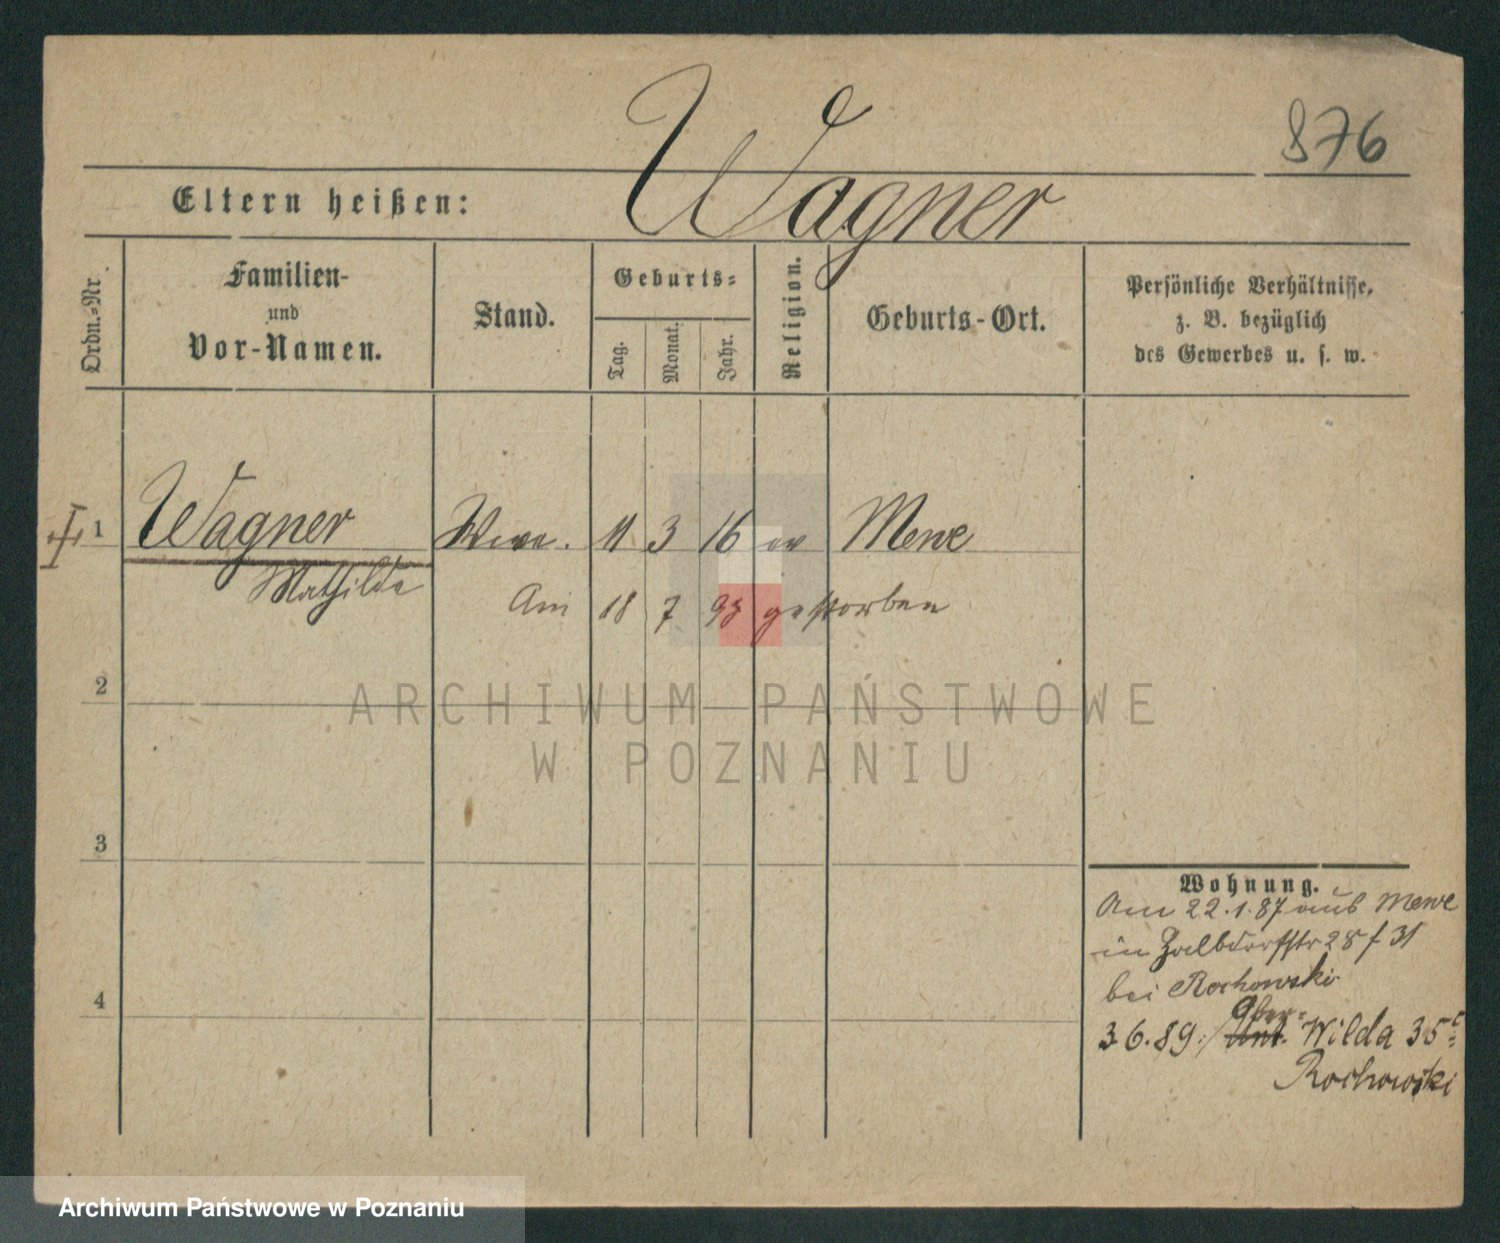 Wagner
876
Eltern heißen:
Ordn.-Nr.
Familien-
und
Vor-Namen.
Stand.
Geburts-
Tag.
Monat.
Jahr.
Religion.
Geburts-Ort.
Persönliche Verhältnisse,
z. B. bezüglich
des Gewerbes u. s. w.
1 Wagner Wwe. 11 3 16 ev Mewe
Mathilde
Am 18 7 93 gestorben
2
ARCHIWUM PAŃSTWOWE
W POZNANIU
3
4
Wohnung.
Am 22.1.87 aus Mewe
in Halbdorfstr 28 f 31
bei Rochowski
Ober-
3.6.89. Unt. Wilda 35c
Rochowski
Archiwum Państwowe w Poznaniu